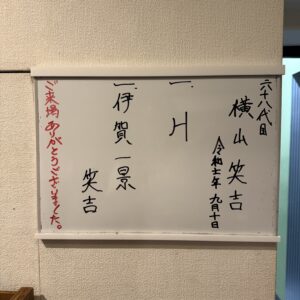 六十八代目
横山笑吉
令和七年 九月十日
一、片
一、伊賀一景
笑吉
ご来場ありがとうございました。